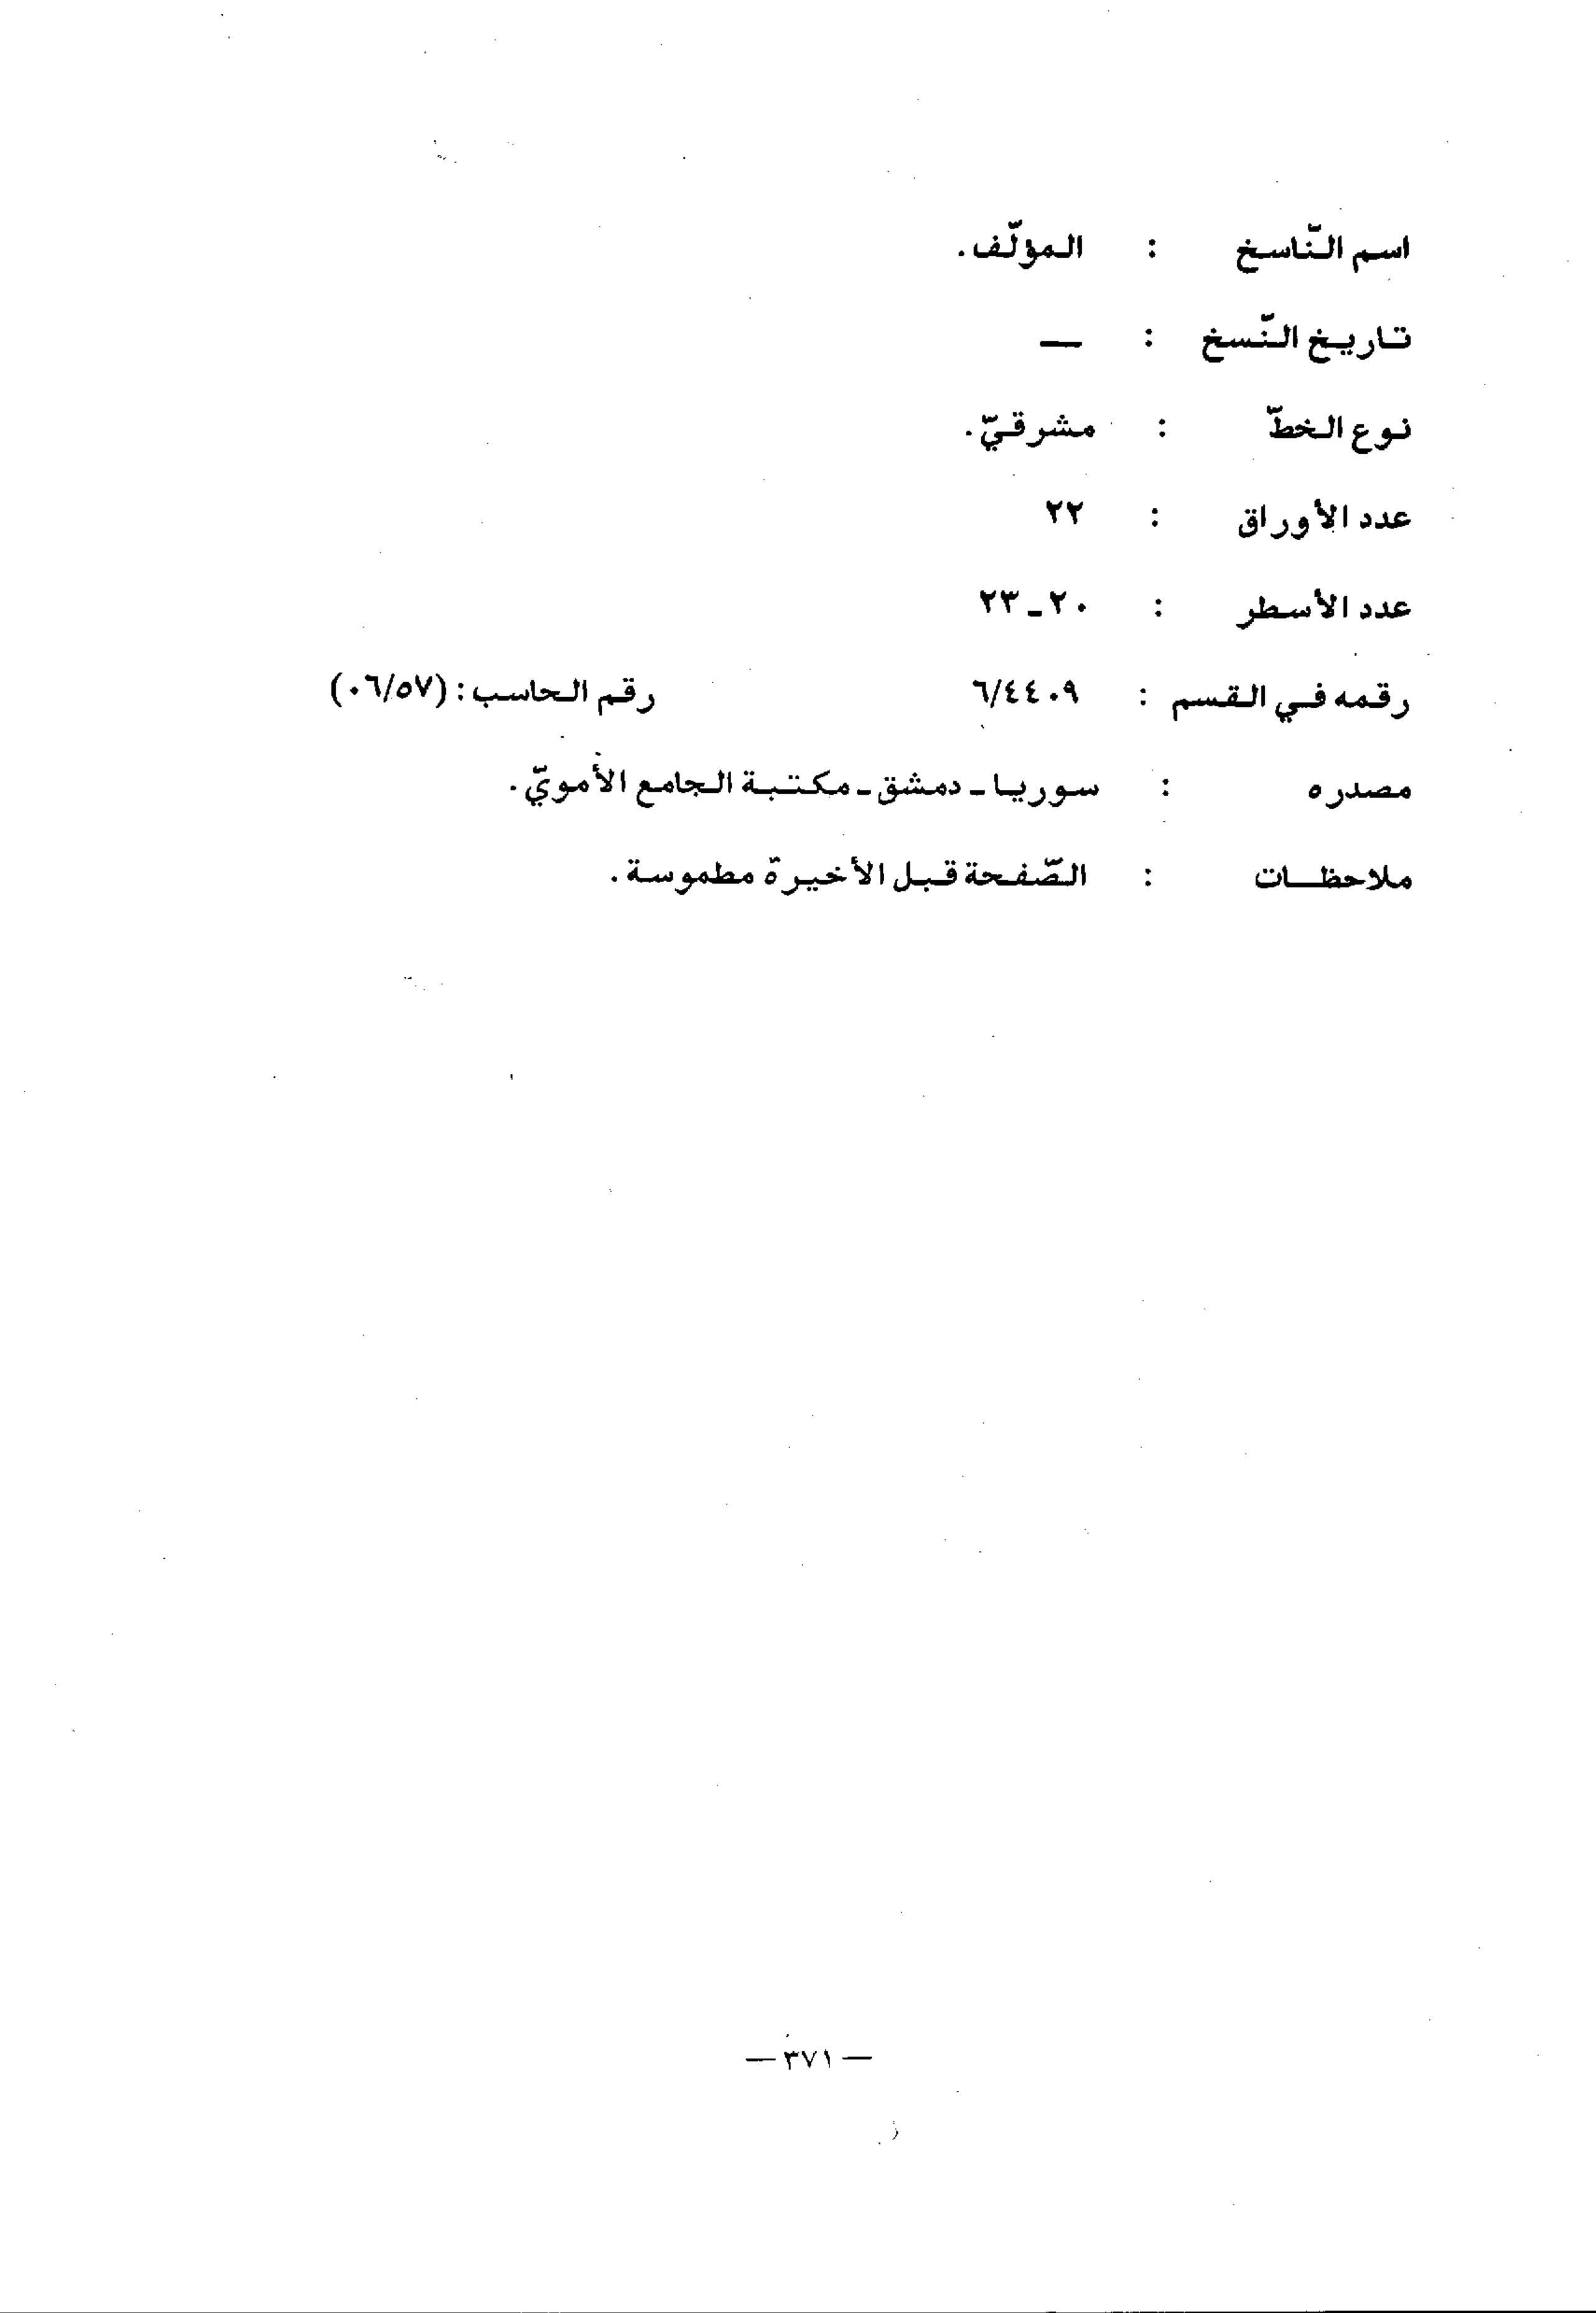 اسم النّاسخ : المؤلّف.
تاريخ النّسخ : —
نوع الخطّ : مشرقيّ.
عدد الأوراق : ٢٢
عدد الأسطر : ٢٠ـ٢٣
رقمه في القسم : ٦/٤٤٠٩ رقم الحاسب : (٠٦/٥٧)
مصدره : سوريا ـ دمشق ـ مكتبة الجامع الأمويّ.
ملاحظات : الصّفحة قبل الأخيرة مطموسة.
— ٣٧١ —